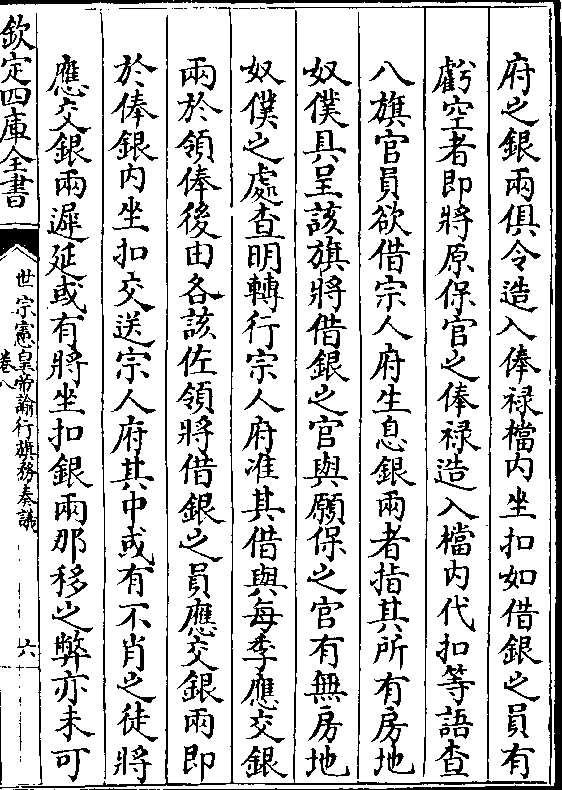 府之銀兩俱令造入俸祿檔内坐扣如借銀之員有
虧空者即將原保官之俸祿造入檔内代扣等語查
八旗官員欲借宗人府生息銀兩者指其所有房地
奴僕具呈該旗將借銀之官與願保之官有無房地
奴僕之處查明轉行宗人府准其借與每季應交銀
兩於領俸後由各該佐領將借銀之員應交銀兩即
於俸銀内坐扣交送宗人府其中或有不肖之徒將
應交銀兩遲延或有將坐扣銀兩那移之弊亦未可
欽定四庫全書
世宗憲皇帝諭行旗務奏議
卷八
六